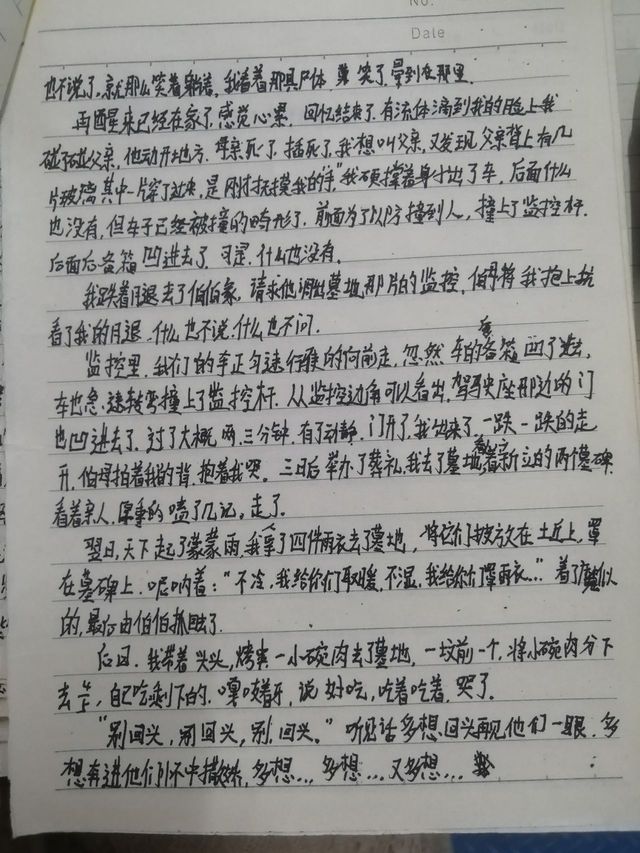 No.
Date
也不说了,就那么笑着躺着,我看着那具尸体,笑了,晕到在那里.
再醒来已经在家了,感觉心累,回忆结束了,有流体滴到我的脸上我
碰了碰父亲,他动开地方,母亲死了,插死了,我想叫父亲,又发现父亲背上有几
片玻璃其中一片穿了过来,是刚扶摸我的手"我硬撑着身爬出了车,后面什么
也没有,但车子已经被撞的畸形了,前面为了以防撞到人,撞上了监控杆.
后面后备箱凹进去了,可是,什么也没有.
我跌着腿去了伯伯家,请求他调出墓地那片的监控,伯母将我抱上炕
看了我的腿,什么也不说,什么也不问.
监控里,我们的车正匀速行驶的向前走,忽然车的后备箱凹了进去,
车也急速转弯撞上了监控杆,从监控边角可以看出,驾驶座那边的门
也凹进去了,过了大概两、三分钟,有了动静,门开了,我出来了,一跌一跌的走
开,伯母拍着我的背,抱着我哭.三日后举办了葬礼,我去了墓地,看着新立的两个墓碑,
看着亲人,重重的嗑了几记,走了.
翌日,天下起了蒙蒙雨,我拿了四件雨衣去了墓地,将它们披放在土丘上,罩
在墓碑上,呢呐着:"不冷,我给你们取暖,不湿,我给你们罩雨衣…"着了魔似
的,最后由伯伯抓回了.
后日,我带着头头,烤熟一小碗肉去了墓地,一坟前一个,将小碗肉分下
去些,自己吃剩下的,嘎吱着牙,说好吃,吃着吃着,哭了.
"别回头,别回头,别,回头."听见话多想回头再见他们一眼,多
想再进他们怀中撒娇,多想…多想…又多想…